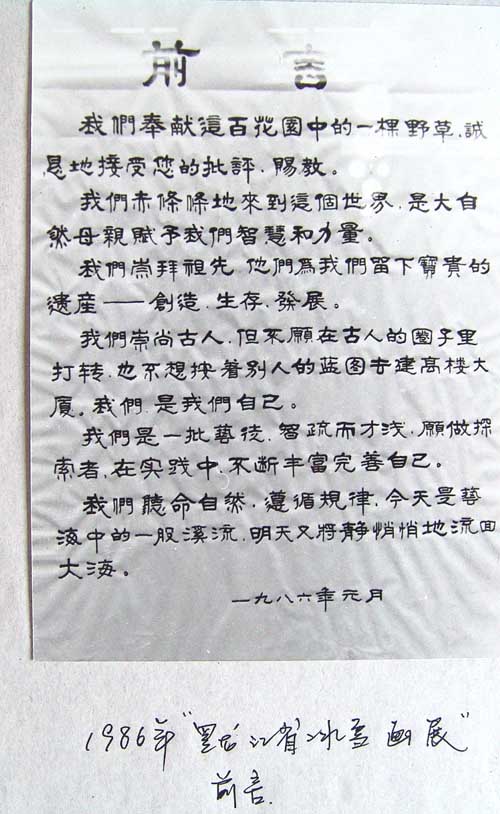 前言
我們奉献這百花園中的一棵野草,誠
恳地接受您的批評、賜教。
我們赤條條地來到這個世界,是大自
然母親賦予我們智慧和力量。
我們崇拜祖先,他們為我們留下寶貴的
遺産——創造、生存、發展。
我們崇尚古人,但不願在古人的圈子里
打转,也不想按着别人的蓝图去建高楼大
厦。我們,是我們自己。
我們是一批藝徒,智疏而才浅,願做探
索者,在实践中,不断丰富完善自己。
我們聽命自然,遵循規律,今天是藝
海中的一股溪流,明天又將静悄悄地流回
大海。
一九八六年元月
1986年“黑龙江省冰雪画展”
前言.